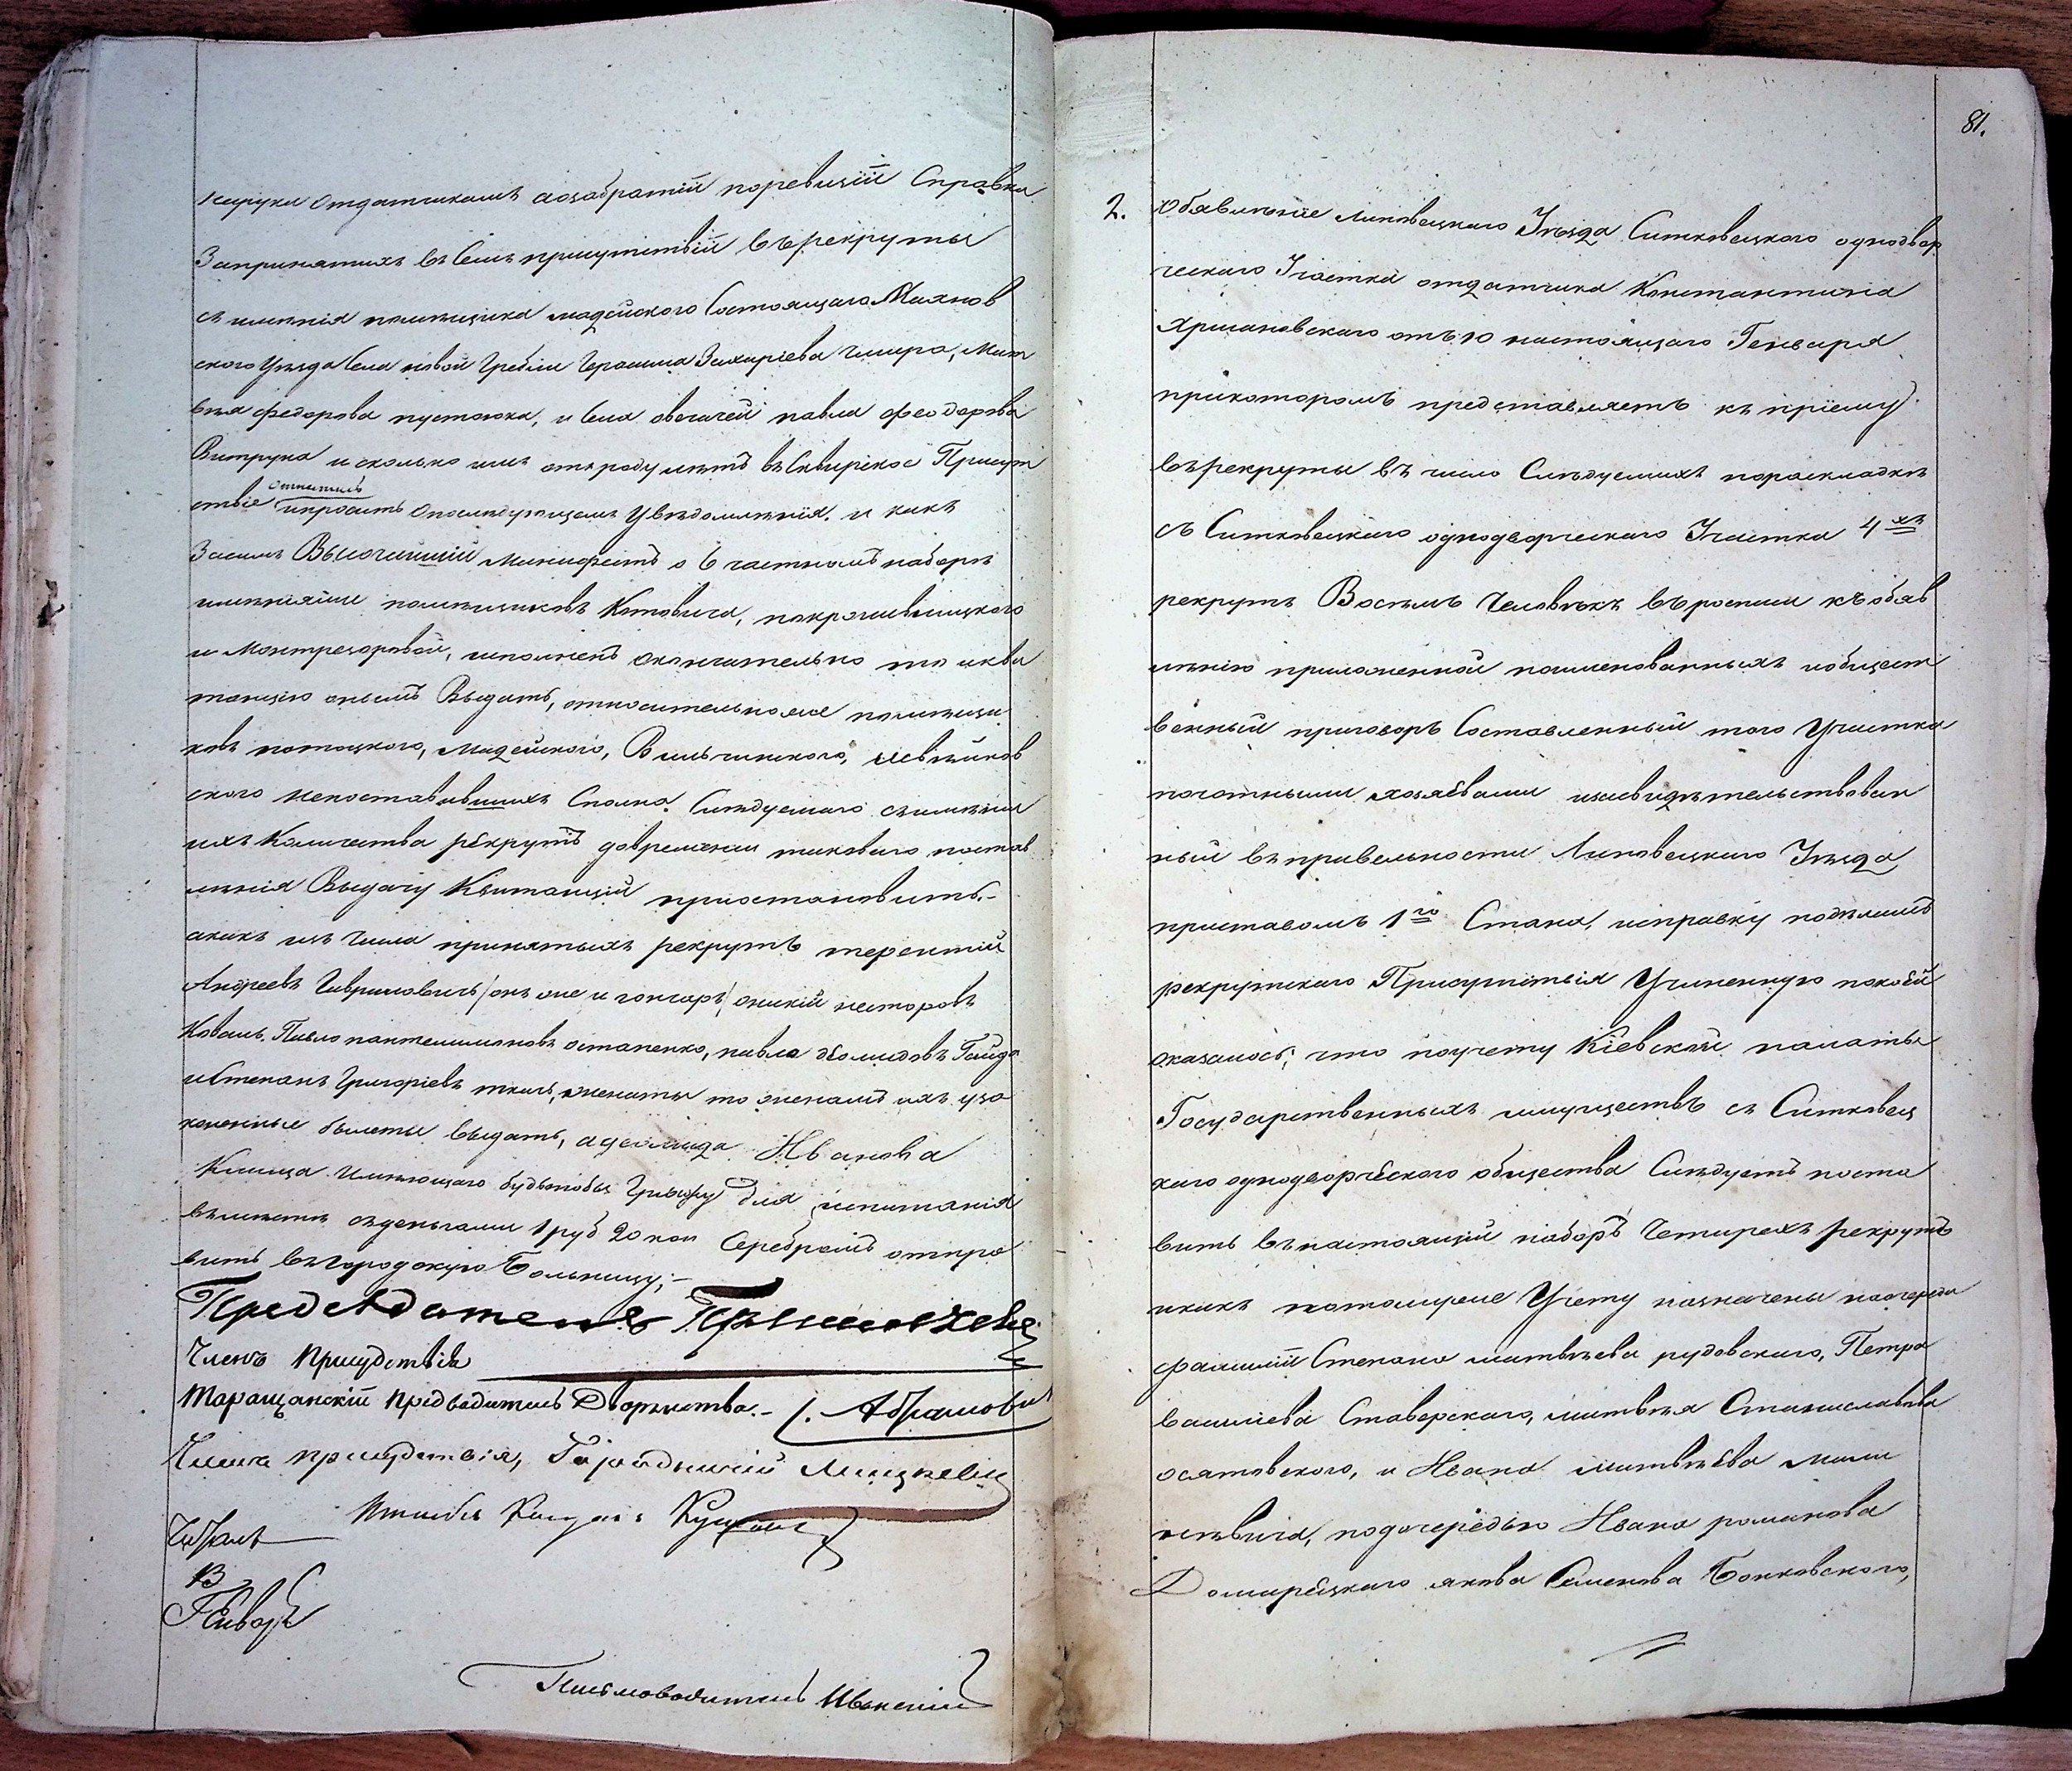 кируки отдатчикамъ азабратіи поревизіи Справки
Запринятихъ въ Семъ присутствіи въ рекруты
съ имѣнія помѣщика мадейского Состоящаго Махнов
ского Уѣзда Села новой Гребли Герасима Захаріева чмира, Мат
вѣя федорова пустоюка, и Села овечачей павла феодорова
Витрука и сколько имъ отъ роду лѣтъ въ Сквирское Присут
ствіе отнестись
ипросить опослѣдующемъ Увѣдомленія. и какъ
Засимъ Высочайшій Манифестъ о 6 частномъ наборѣ
имѣніями помѣщиковъ Котовича,
и Монтрезоровой, исполненъ окончательно то икви
танцію онымъ Выдать, относительноже помѣщи
ковъ потоцкого, Мадейского, Вильчинского,
ского непоставившихъ Сполна Слѣдуемаго съимѣніи
ихъ Количества рекрутъ довремени таковаго постав
ленія Выдачу Квитанціи приостановить.-
акакъ изъ числа принятыхъ рекрутъ терентій
Андреевъ Гавриловичъ /онъ же и гончаръ/, оникій несторовъ
Коваль, Павло пантелимоновъ остапенко, павло Гайда
иСтепанъ Григоріевъ ткачъ, женаты то женамъ ихъ уза
коненные билеты выдать, а Иванова
Клища Имѣющаго будьтобы Грыжу для испитанія
вмѣстѣ съденьгами 1 руб 20 коп Серебромъ отпра
вить въ городскую Больницу;-
Предсѣдатель
Членъ Присудствія
Таращанскій предводитель Дворянства.- Абрамови
Члены присудствія, Городничій
Штабъ
Читалъ
13
Генвар
Письмоводитель
81.
2. Объявленіе Липовецкаго Уѣзда Ситковецкого однодвор
ческаго Участка отдатчика Константина
Хржановскаго отъ 10 настоящаго Генваря
прикоторомъ представляетъ къ пріему
въ рекруты въ число Слѣдуемихъ пораскладкѣ
съ Ситковецкаго однодворческаго Участка 4 хъ
рекрутъ Восемъ человѣкъ въросписи къобъяв
ленію приложенной поименованныхъ иобщест
венный приговоръ Составленный того Участка
почотными хозяевами изасвидѣтельствован
ный въправельности Липовецкаго Уѣзда
приставомъ 1го Стана, исправку подѣламъ
рекрутскаго Присутствія Учиненную покоей
оказалось; что поучету Кіевской палаты
Государственныхъ имуществъ съ Ситковец
каго однодворческого общества Слѣдуетъ поста
вить въ настоящій наборъ Четирехъ рекрутъ
икакъ потомуже Учету назначены поочереди
фамиліи Степана матвѣева рудовскаго, Петра
василіева Ставерскаго, матвѣя Станиславова
осятовского, и Ивана Матвѣева мали
невича, подочередью Ивана романова
Домарецкаго якова Семенова Бонковского,